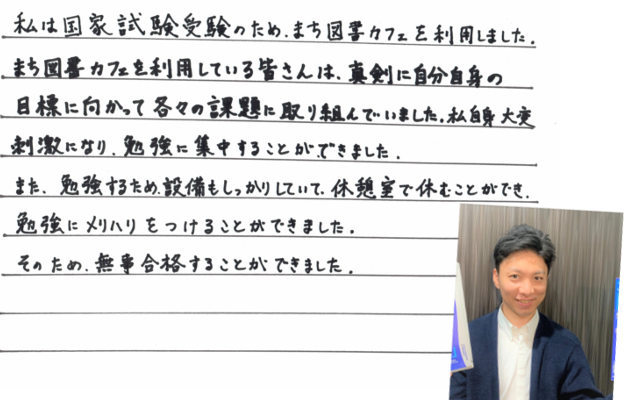 私は国家試験受験のため、まち図書カフェを利用しました。
まち図書カフェを利用している皆さんは、真剣に自分自身の
目標に向かって各々の課題に取り組んでいました。私自身大変
刺激になり、勉強に集中することができました。
また、勉強するため設備もしっかりしていて、休憩室で休むことができ、
勉強にメリハリをつけることができました。
そのため、無事合格することができました。